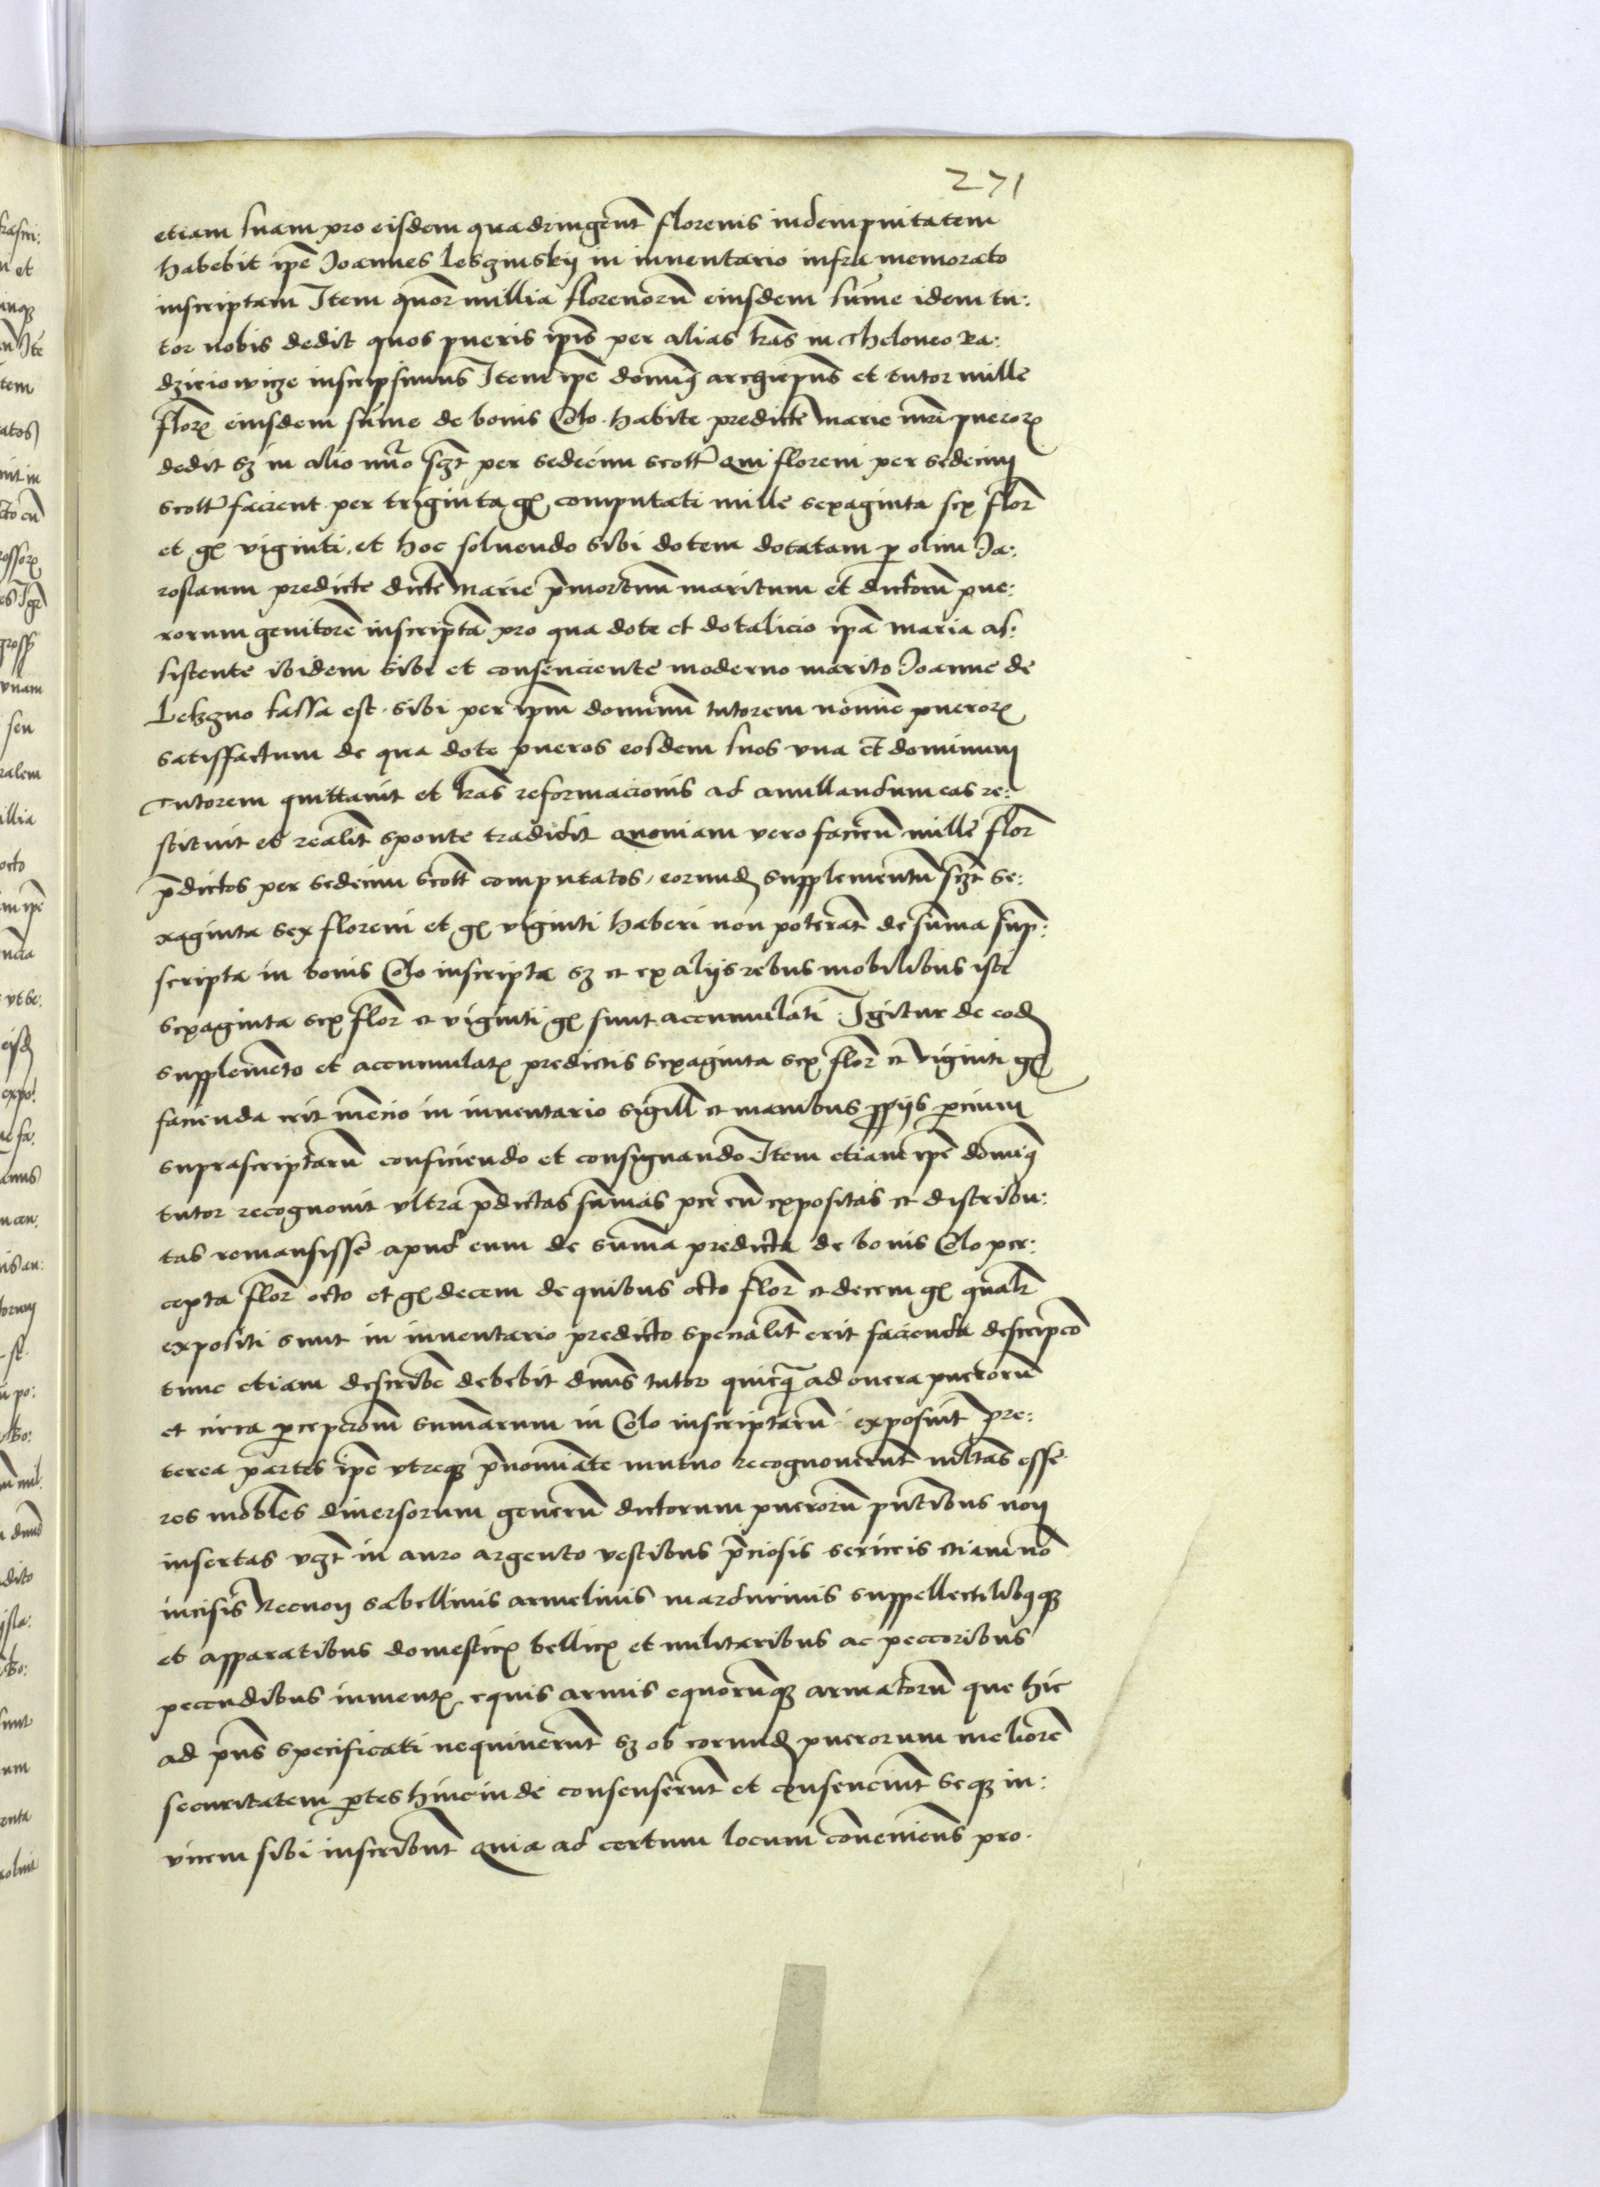 271
etiam suam pro eisdem quadringent florenis indempnitatem
habebit ipe Joannes Lesginskij in inventario infra memorato
inscriptam Item quor millia florenoru eiusdem sume idem tu:
tor nobis dedit quos pueris ipis per alias lras in Theloneo Ra:
dzieiowicze inscripsimus Item ipe dominus archiepus et tutor mille
flor eiusdem sume de bonis Colo habite predicte Marie mri pueror
dedit sz in alio nuo sczt per sedecim scott qui floreni per sedecim
scott facient per triginta gs computati mille sexaginta sex flor
et gs viginti et hoc solvendo sibi dotem dotatam p olim Ja:
roslaum predicte dicte Marie pmortuum maritum et dictoru pue:
rorum genitore inscripta pro qua dote et dotalicio ipa Maria as:
sistente ibidem sibi et consenciente moderno marito Joanne de
Lesgno fassa est sibi per ipm dominum tutorem nomine pueror
satisfactum de qua dote pueros eosdem suos una ct dominum
Tutorem quittavit et lras reformacionis ad anullandum eas re:
stituit et realit sponte tradidit Quoniam vero faciem mille flor
pdictos per sedecim scott computatos, eorund supplementu sczt se:
xaginta sex floreni et gs viginti haberi non poterat de suma sup:
scripta in bonis Colo inscripta sz et ex alijs rebus mobilibus isti
sexaginta sex flor et viginti gs sunt accumulati Igitur de eod
supplemeto et accumulatis predictis sexaginta sex flor et viginti gs
facienda erit mecio in inventario sigill et manibus pprijs parcium
suprascriptaru conficiendo et consignando Item etiam ipe dominus
tutor recognovit ultra pdictas sumas per eu expositas et distribu:
tas remansisse apud eum de suma predicta de bonis Colo per:
cepta flor octo et gs decem de quibus octo flor et decem gs qualr
expositi sunt in inventario predicto specialit erit facienda descripcio
tunc etiam describe debebit dnus tutor quicq ad onera pueroru
et circa percepcom sumarum in Colo inscriptaru exposuit pre:
terea partes ipe utreque pnominate mutuo recognoverut multas esse
res mobles diversorum generu dictorum pueroru pntibus non
insertas vczt in auro argento vestibus pciosis sericeis etiam no
incisis Necnon sabellinis armelinis mardurinis suppellectilibusque
et apparatibus domesticis bellicis et militaribus ac peccoribus
pecudibus iumentis equis armis equoruque armatoru que hic
ad pns specificati nequiverut sz ob eorund puerorum meliore
securitatem ptes hincinde consenserut et consenciut seque in:
vicem sibi inscribut Quia ad certum locum conveniens pro